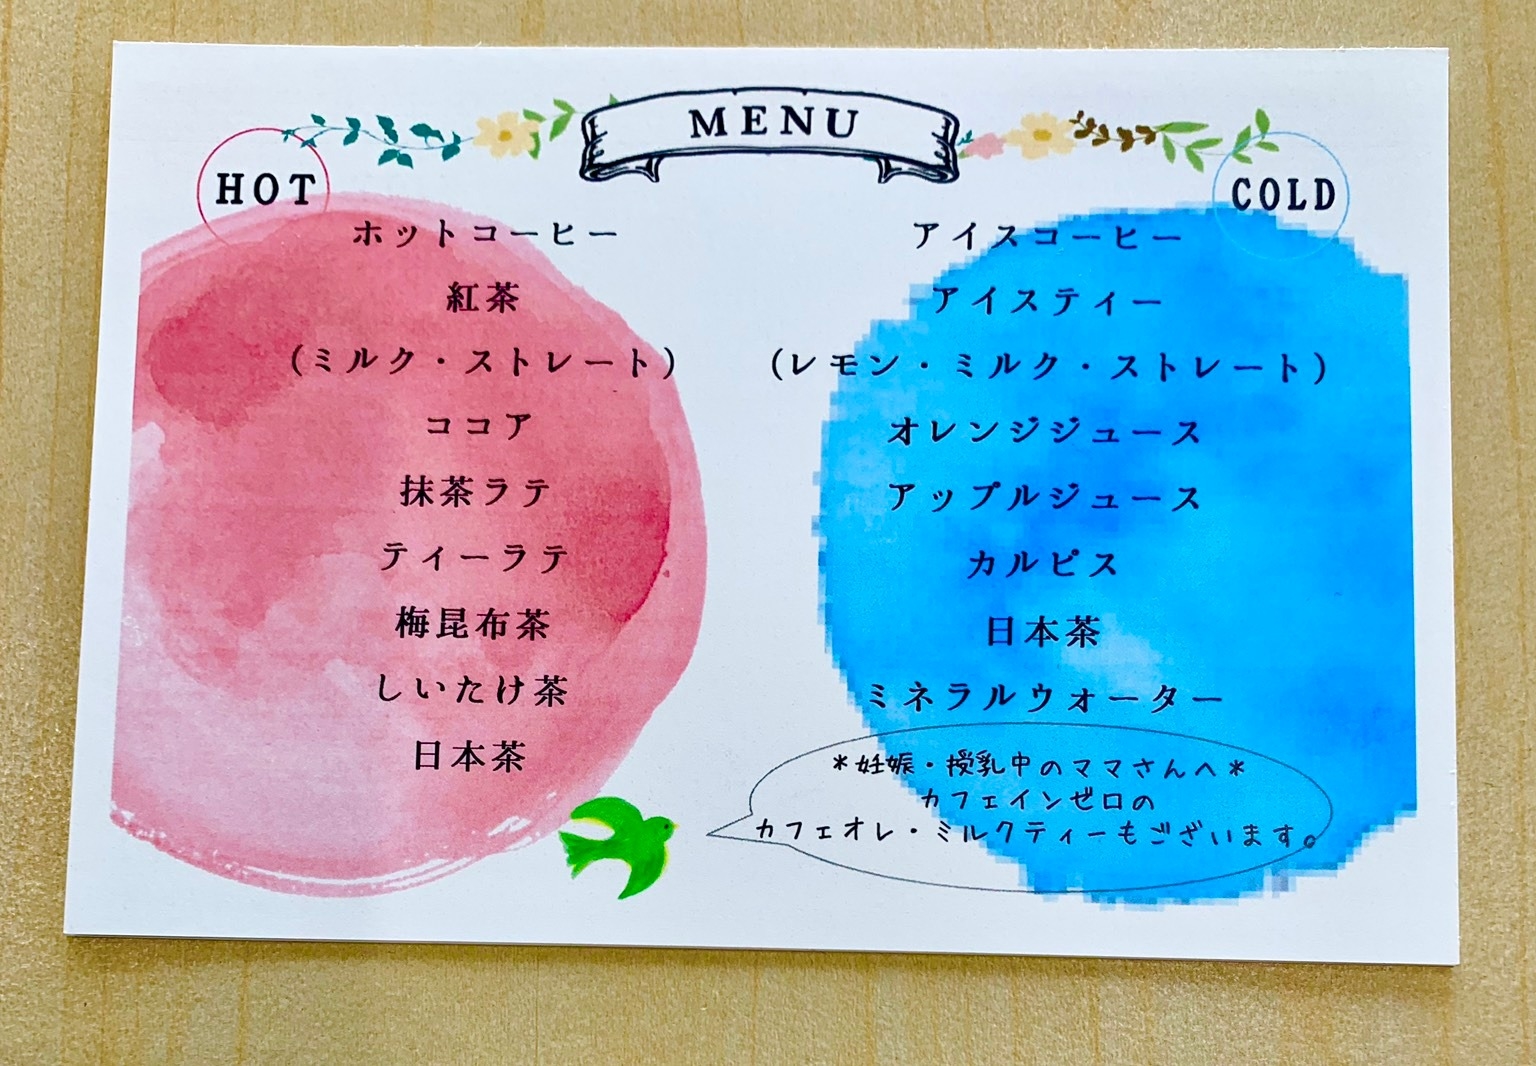 MENU
HOT
ホットコーヒー
紅茶
(ミルク・ストレート)
ココア
抹茶ラテ
ティーラテ
梅昆布茶
しいたけ茶
日本茶
COLD
アイスコーヒー
アイスティー
(レモン・ミルク・ストレート)
オレンジジュース
アップルジュース
カルピス
日本茶
ミネラルウォーター
*妊娠・授乳中のママさんへ*
カフェインゼロの
カフェオレ・ミルクティーもございます。